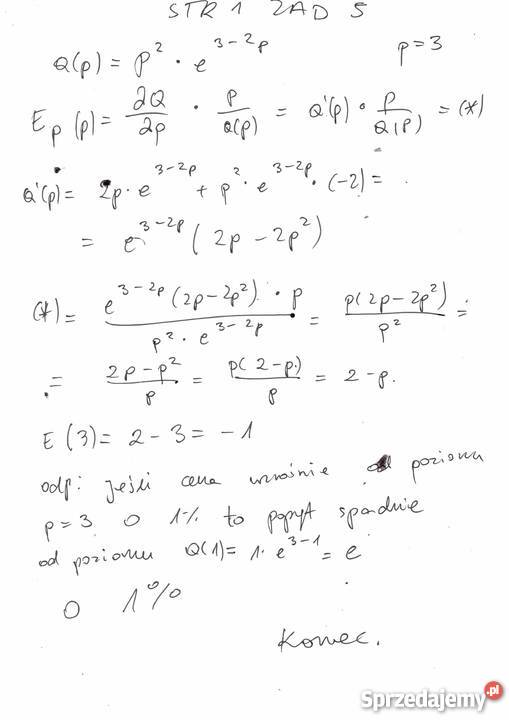 STR 1 ZAD 5
Q(p) = p² · e^(3-2p) p = 3
E_p(p) = ∂Q/∂p · p/Q(p) = Q'(p) · p/Q(p) = (*)
Q'(p) = 2p · e^(3-2p) + p² · e^(3-2p) · (-2) =
= e^(3-2p) (2p - 2p²)
(*) = e^(3-2p) (2p - 2p²) · p / p² · e^(3-2p) = p(2p - 2p²) / p² =
= 2p - p² / p = p(2-p) / p = 2 - p.
E(3) = 2 - 3 = -1
odp: jeśli cena wzrośnie od poziomu
p = 3 o 1% to popyt spadnie
od poziomu Q(1) = 1 · e^(3-1) = e
o 1%
Koniec.
Sprzedajemy.pl